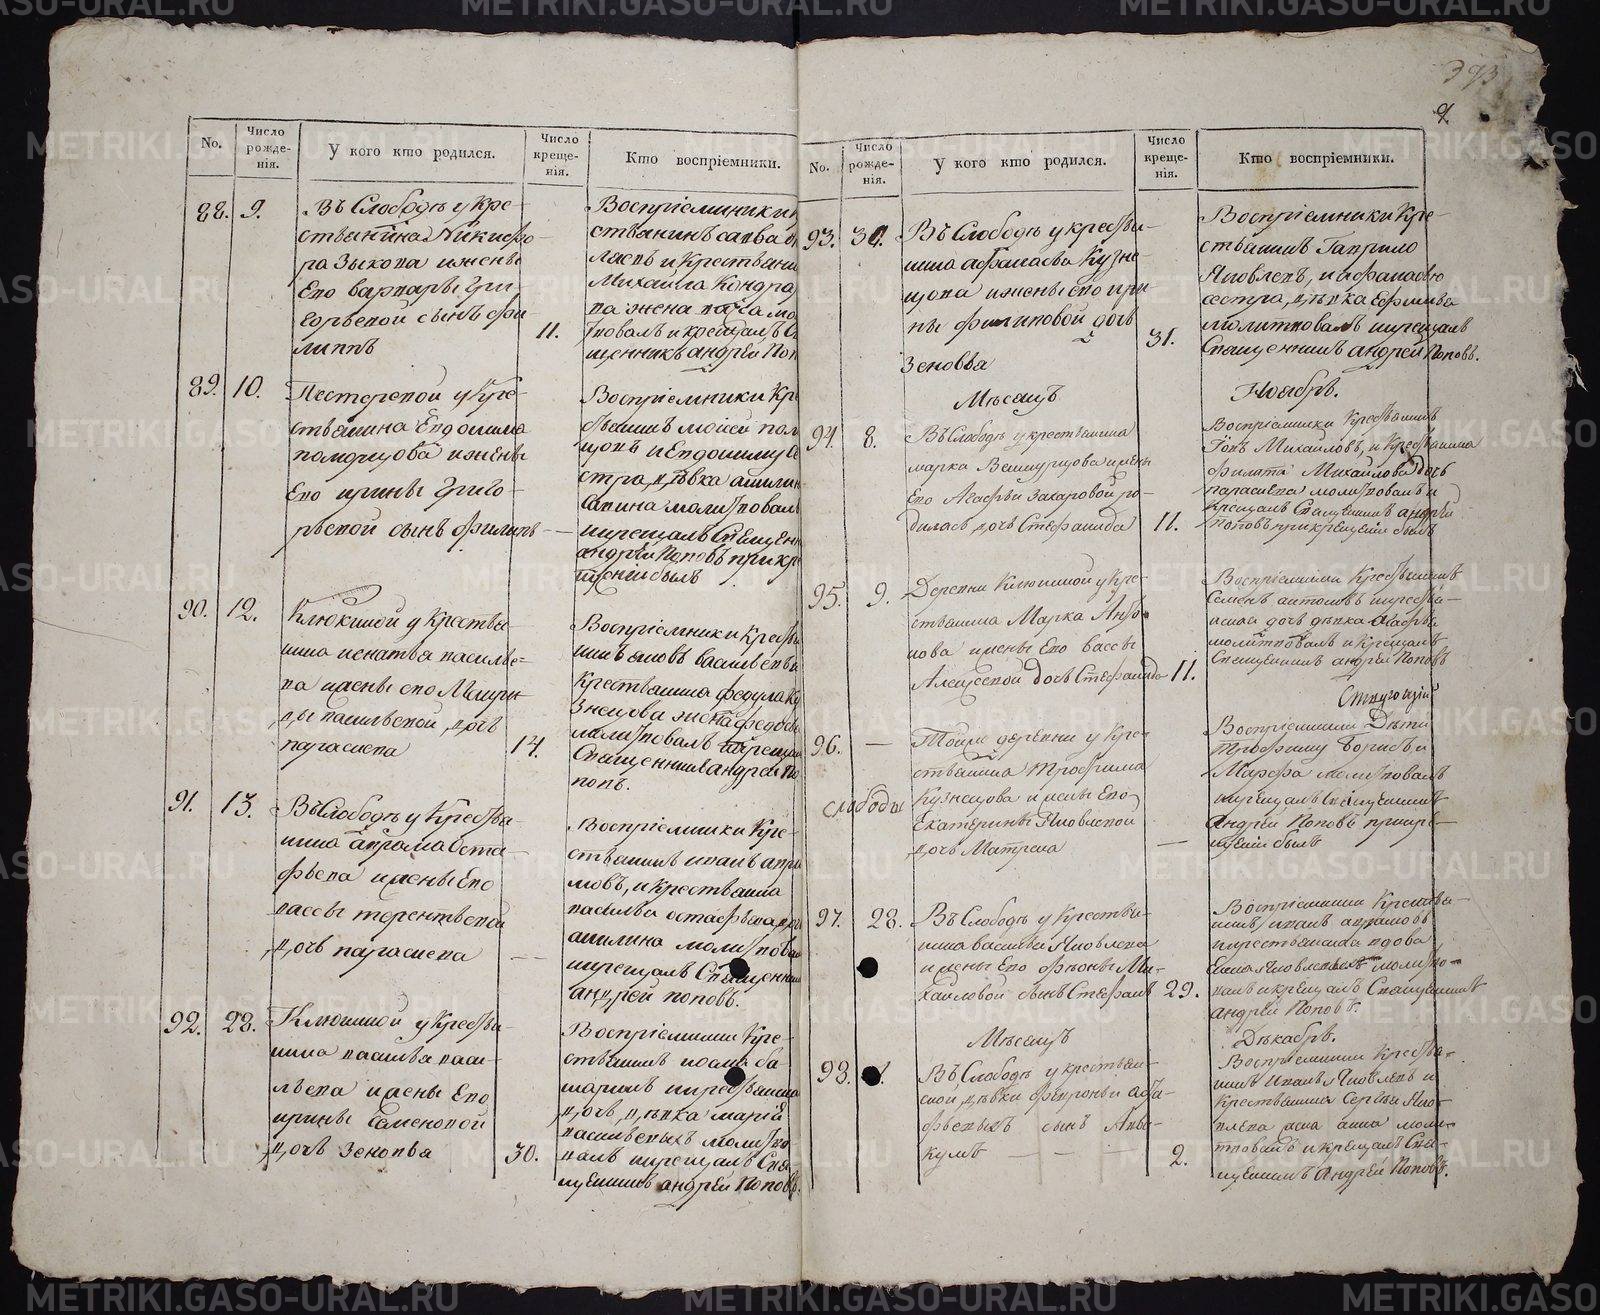 393
9.
No.
Число рожде- нія.
У кого кто родился.
Число креще- нія.
Кто воспріемники.
88. 9.
Въ Слободѣ у кре-
стьянина Никифо-
ра Зыкова и жены
Его варвары Гри-
горьевой сынъ фи-
липпъ
11.
Воспріемники к
стьянинъ савва
и Крестьяни
Михаила Кондра
ва жена
и крещалъ С
щенникъ андрей Поп
89. 10.
Пестеревой у Кре-
стьянина Евдокима
и жены
Его ирины Григо-
рьевой сынъ филипъ —
Воспріемники Кр
стьянинъ мойсей
и Евдокиму се
стра, дѣвка акилин
молитвовалъ
и крещалъ Священн
андрей Поповъ при кре
щеніи былъ
90. 12.
Клюкиной у Крестья-
нина игнатья василье-
ва и жены его
ды васильевой, дочь
параскева
14.
Воспріемники Крестья
нинъ яковъ васильевъ и
Крестьянина федула Ку
знецова жена федось
молитвовалъ и крещалъ
Священникъ андрей По
повъ.
91. 13.
Въ Слободѣ у Крестья-
нина аврама Оста-
фьева и жены Его
вассы терентьевой
дочь параскева
— —
Воспріемники Кре-
стьянинъ иванъ авра
мовъ, и Крестьянина
василья остафьева дочь
акилина молитвовал
и крещалъ Священник
андрей поповъ.
92. 28.
Клюкиной у Крестья-
нина василья васи-
льева и жены Его
ирины Семеновой
дочь Зеновва
30.
Воспріемники Кре-
стьянинъ
и крестьянина
дочь, дѣвка марія
васильевыхъ молитво-
валъ и крещалъ Свя-
щенникъ андрей Поповъ.
No.
Число рожде- нія.
У кого кто родился.
Число креще- нія.
Кто воспріемники.
93. 30.
Въ Слободѣ у крестья-
нина афанасья Кузне-
цова и жены его ири-
ны филиповой дочь
Зеновва
31.
Воспріемники Кре-
стьянинъ Гаврило
Яковлевъ, и афанасью
сестра, дѣвка Ефимья
молитвовалъ и крещалъ
Священникъ андрей Поповъ.
Мѣсецъ
Ноябрь.
94. 8.
Въ Слободѣ у крестьянина
марка и жены
Его Агафьи Захаровой ро-
дилась дочь Стефанида
11.
Воспріемники Крестьянинъ
Михайловъ, и Крестьянина
филата Михайлова дочь
параскева молитвовалъ и
крещалъ Священникъ андрей
поповъ при крещеніи былъ
95. 9.
Деревни Клюкиной у Кре-
стьянина Марка Анто-
нова и жены Его вассы
Алексеевой дочь Стефанида
11.
Воспріемники Крестьянинъ
Семенъ антоновъ и крестья-
нина дочь дѣвка Агафья
молитвовалъ и крещалъ
Священникъ андрей Поповъ
96. —
Тойже деревни у Кре-
слободы
стьянина Трофима
Кузнецова и жены Его
Екатерины Яковлевой
дочь Матрена
—
Воспріемники Дѣти
Трофиму Борисъ и
Марфа молитвовалъ
и крещалъ Священникъ
Андрей Поповъ при кре-
щеніи былъ
97. 28.
Въ Слободѣ у Крестья-
нина василья Яковлева
и жены Его феоны Ми-
хайловой сынъ Стефанъ
29.
Воспріемники Крестья-
нинъ иванъ аврамовъ
и крестьянская вдова
молитво-
валъ и крещалъ Священникъ
андрей Поповъ.
Мѣсецъ
Декабрь.
98. 1.
Въ Слободѣ у крестьян-
ской дѣвки февроньи аста-
фьевыхъ сынъ Авва-
кумъ — — —
2.
Воспріемники Крестья-
нинъ Иванъ Яковлевъ и
Крестьянина Сергея Яко-
влева жена анна моли-
твовалъ и крещалъ Свя-
щенникъ Андрей Поповъ.
METRIKI.GASO-URAL.RU